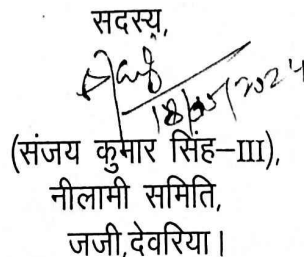 सदस्य,
18/05/2024
(संजय कुमार सिंह–III),
नीलामी समिति,
जजी,देवरिया।